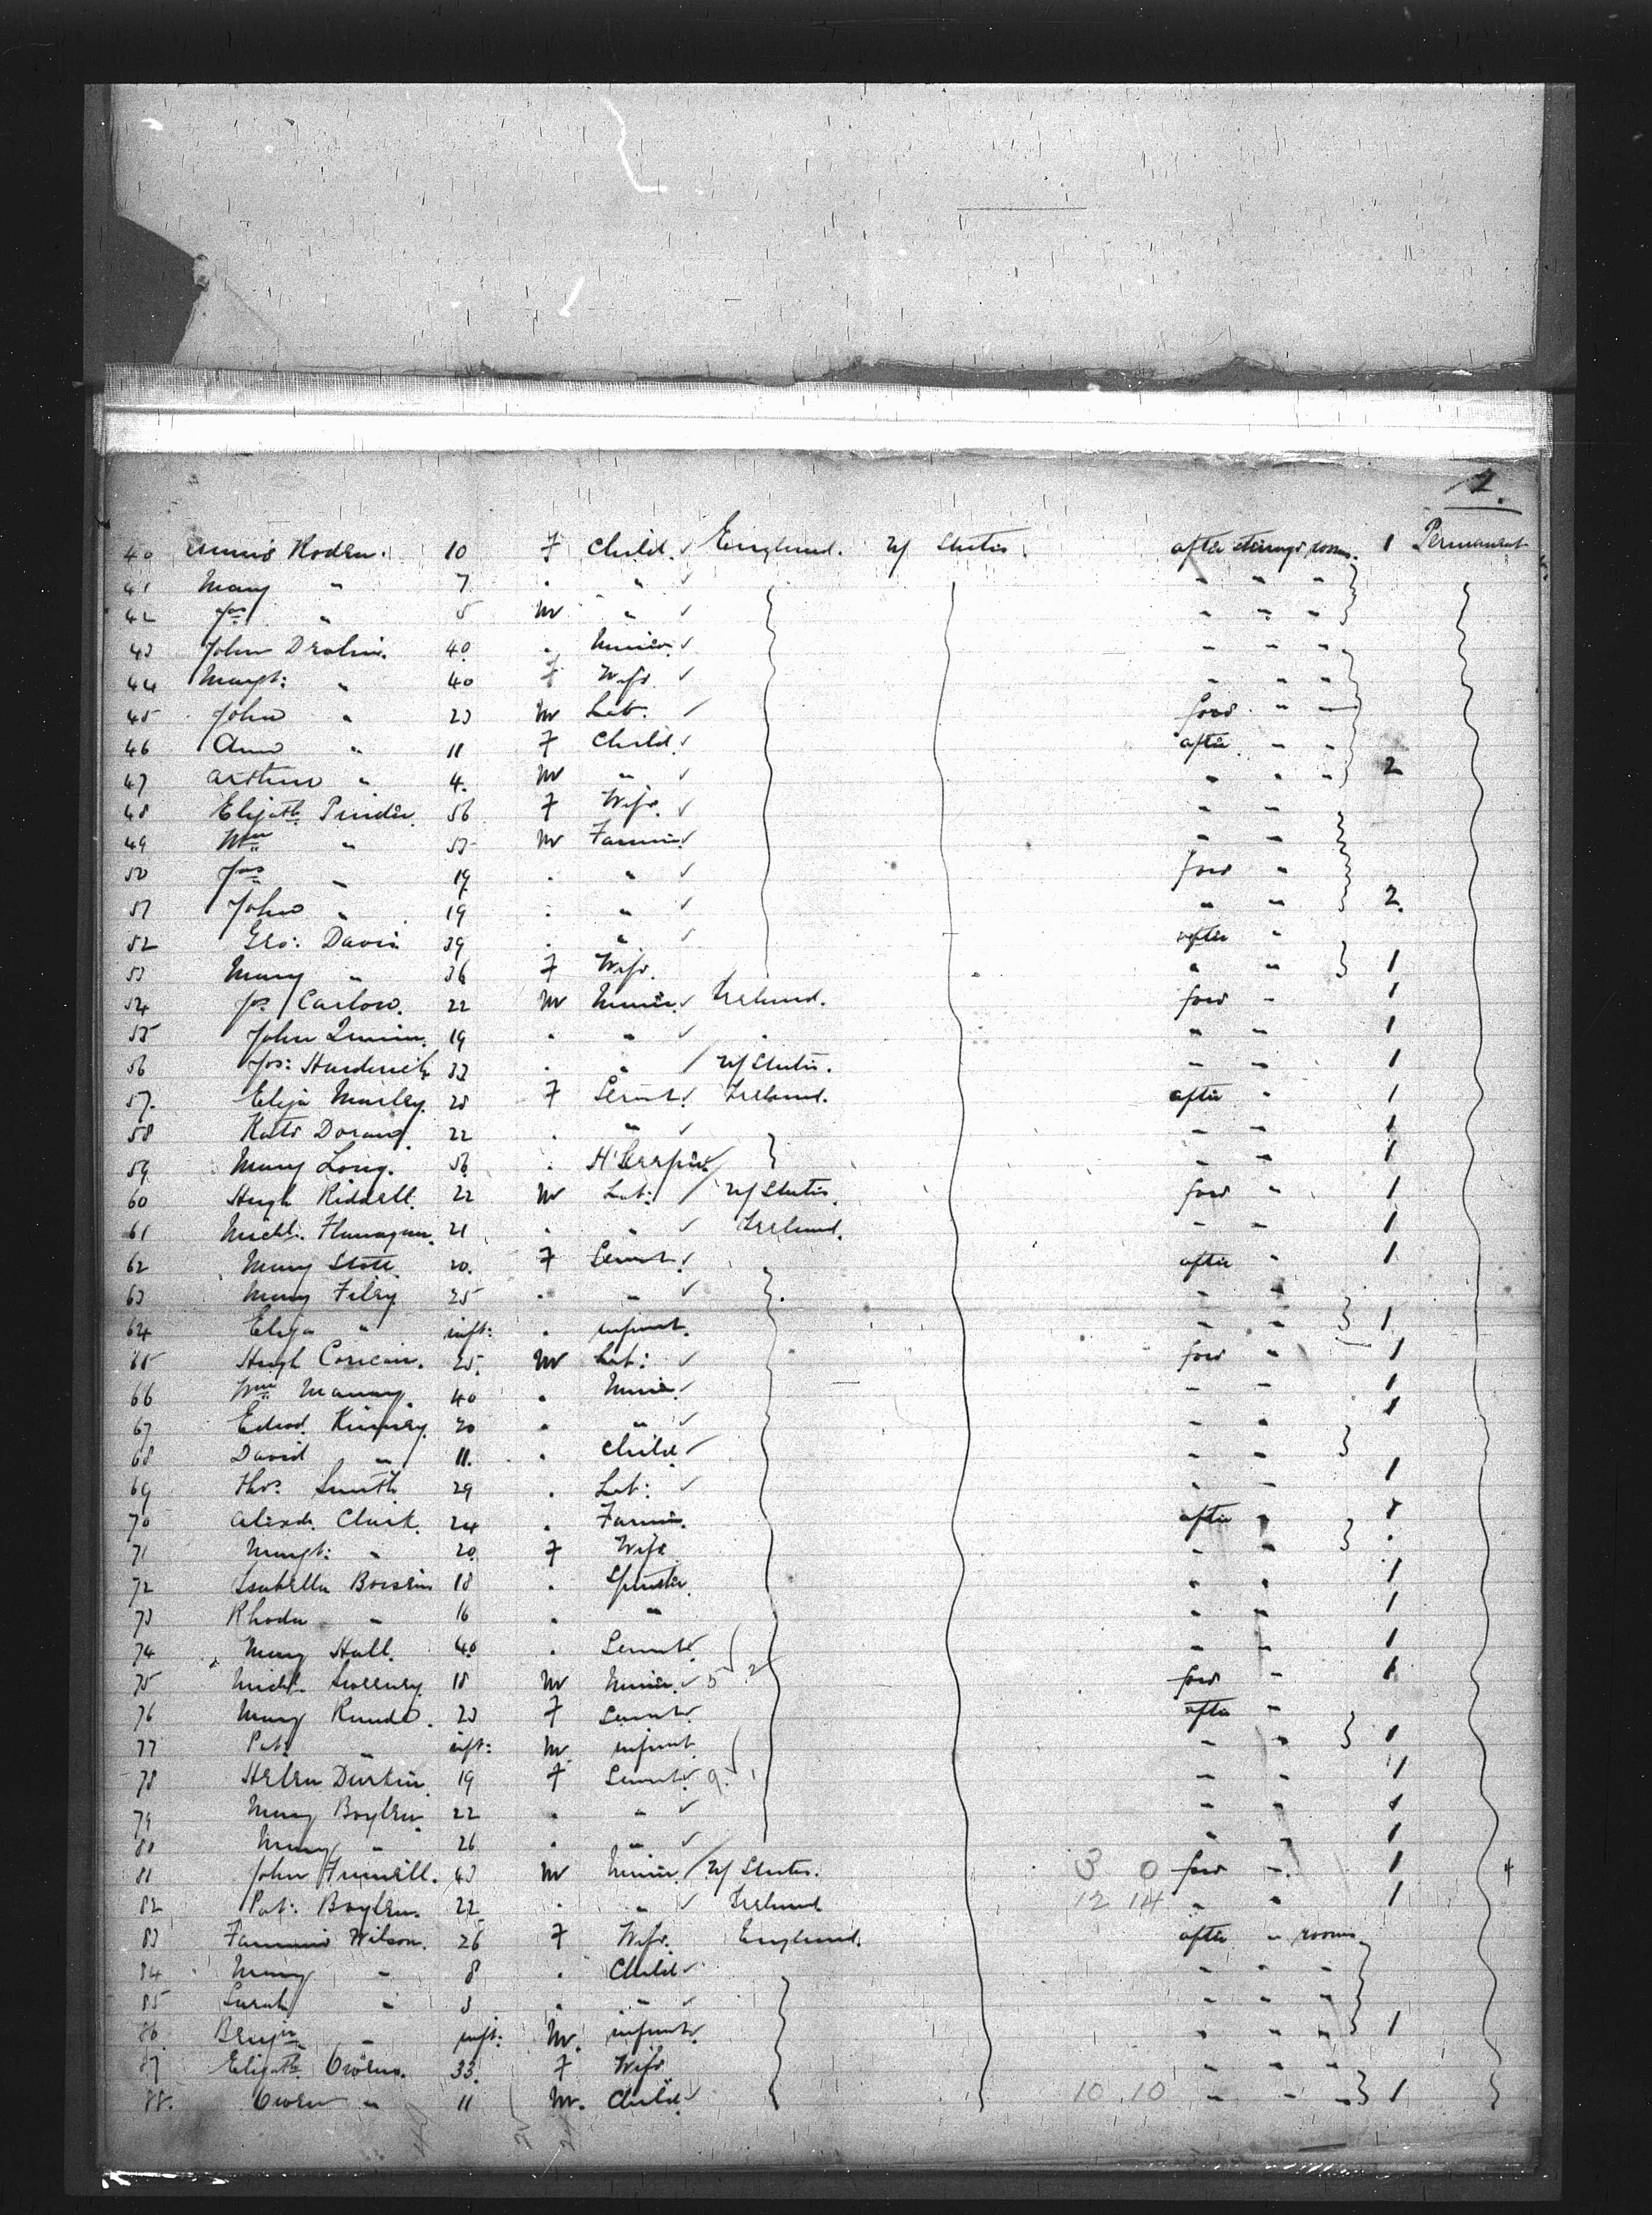 2.
40 Roden. 10 F Child. England. U States after steerage rooms. 1 Permanent
41 Mary " 7 " " " " "
42 Jas " 5 M " " " "
43 John 40 " Miner " " "
44 Margt: " 40 F Wife " " "
45 John " 23 M Lab: ford " "
46 Ann " 11 F Child after " "
47 Arthur " 4. M " " " " 2
48 Elizath. Pinder 56 F Wife. " "
49 Wm " 55 M Farmer " "
50 Jas " 19 " " ford "
51 John " 19 " " " " 2.
52 Geo: Davis 39 " " after "
53 Mary " 36 F Wife. " " 1
54 Jas Carlow. 22 M Miner Ireland. ford " 1
55 John 19 " " " " " 1
56 Jos: 33 " " U States. " " 1
57. Eliza Morley. 25 F Servt. Ireland. after " 1
58 Kate Doran 22 " " " " 1
59 Mary Long. 56 " H'keeper " " 1
60 Hugh Riddell. 22 M Lab: U States ford " 1
61 Michl. Flanagan. 21 " " Ireland. " " 1
62 Mary Stott 20. F Servt. after " 1
63 Mary Filey 25 " " " "
64 Eliza " inft: " infant. " " 1
65 Hugh 25. M Lab: ford " 1
66 Wm 40 " Miner " " 1
67 Edwd. 20 " " " " 1
68 David " 11. " Child " "
69 Thos. Smith 29 " Lab: " " 1
70 Alexdr. Clark. 24 " Farmer. after " 1
71 Margt: " 20. F Wife " "
72 Isabella 18 " Spinster " " 1
73 Rhoda " 16 " " " " 1
74 Mary Hall. 40. " Servt " " 1
75 Michl. Sweeney. 18 M Miner 5 2 ford " 1
76 Mary 23 F Servt after "
77 Pat: " inft: M. infant " " 1
78 Helen Durkin 19 F Servt 9 1 " " 1
79 Mary Boylen. 22 " " " " 1
80 Mary " 26 " " " " 1
81 John 43 M Miner U States. 3 0 ford " 1
82 Pat: Boylen. 22 " " Ireland 12 14 " " 1
83 Wilson. 26 F Wife. England. after " rooms
84 Mary " 8 " Child " " "
85 Sarah " 3 " " " " "
86. Benjn " inft: M. infant " " " 1
87 Elizath. Owens. 33. F Wife " " "
88. Owen " 11 M. Child 10 10 " " " 1